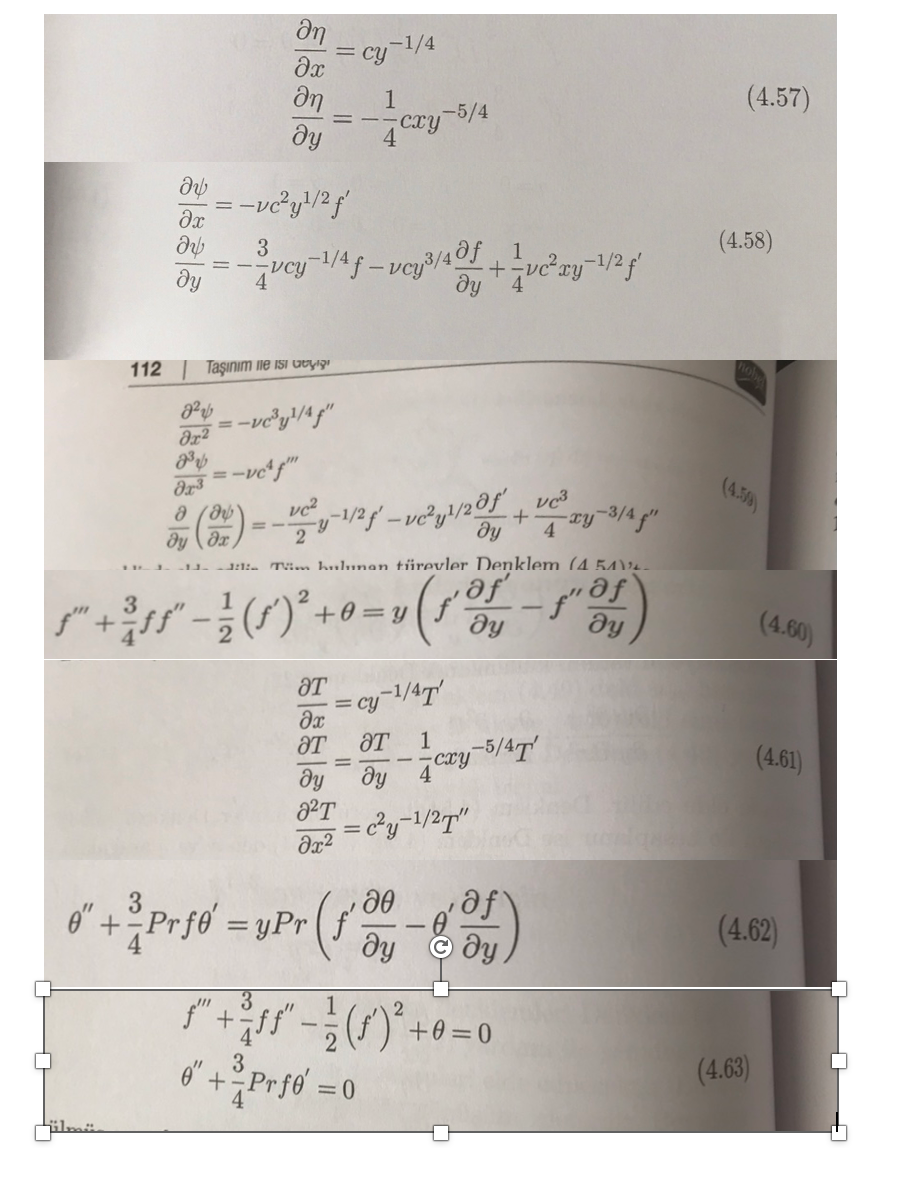 ∂η/∂x = cy^{-1/4}
∂η/∂y = -1/4 cxy^{-5/4} (4.57)
∂ψ/∂x = -νc²y^{1/2}f′
∂ψ/∂y = -3/4 νcy^{-1/4}f - νcy^{3/4} ∂f/∂y + 1/4 νc²xy^{-1/2}f′ (4.58)
112 | Taşınım ile Isı Geçişi
∂²ψ/∂x² = -νc³y^{1/4}f″
∂³ψ/∂x³ = -νc⁴f‴
∂/∂y (∂ψ/∂x) = -νc²/2 y^{-1/2}f′ - νc²y^{1/2} ∂f′/∂y + νc³/4 xy^{-3/4}f″ (4.59)
elde edilir. Tüm bulunan türevler Denklem (4.54)'te
f‴ + 3/4 ff″ - 1/2 (f′)² + θ = y (f′ ∂f′/∂y - f″ ∂f/∂y) (4.60)
∂T/∂x = cy^{-1/4}T′
∂T/∂y = ∂T/∂y - 1/4 cxy^{-5/4}T′ (4.61)
∂²T/∂x² = c²y^{-1/2}T″
θ″ + 3/4 Prfθ′ = yPr (f′ ∂θ/∂y - θ′ ∂f/∂y) (4.62)
f‴ + 3/4 ff″ - 1/2 (f′)² + θ = 0
θ″ + 3/4 Prfθ′ = 0 (4.63)